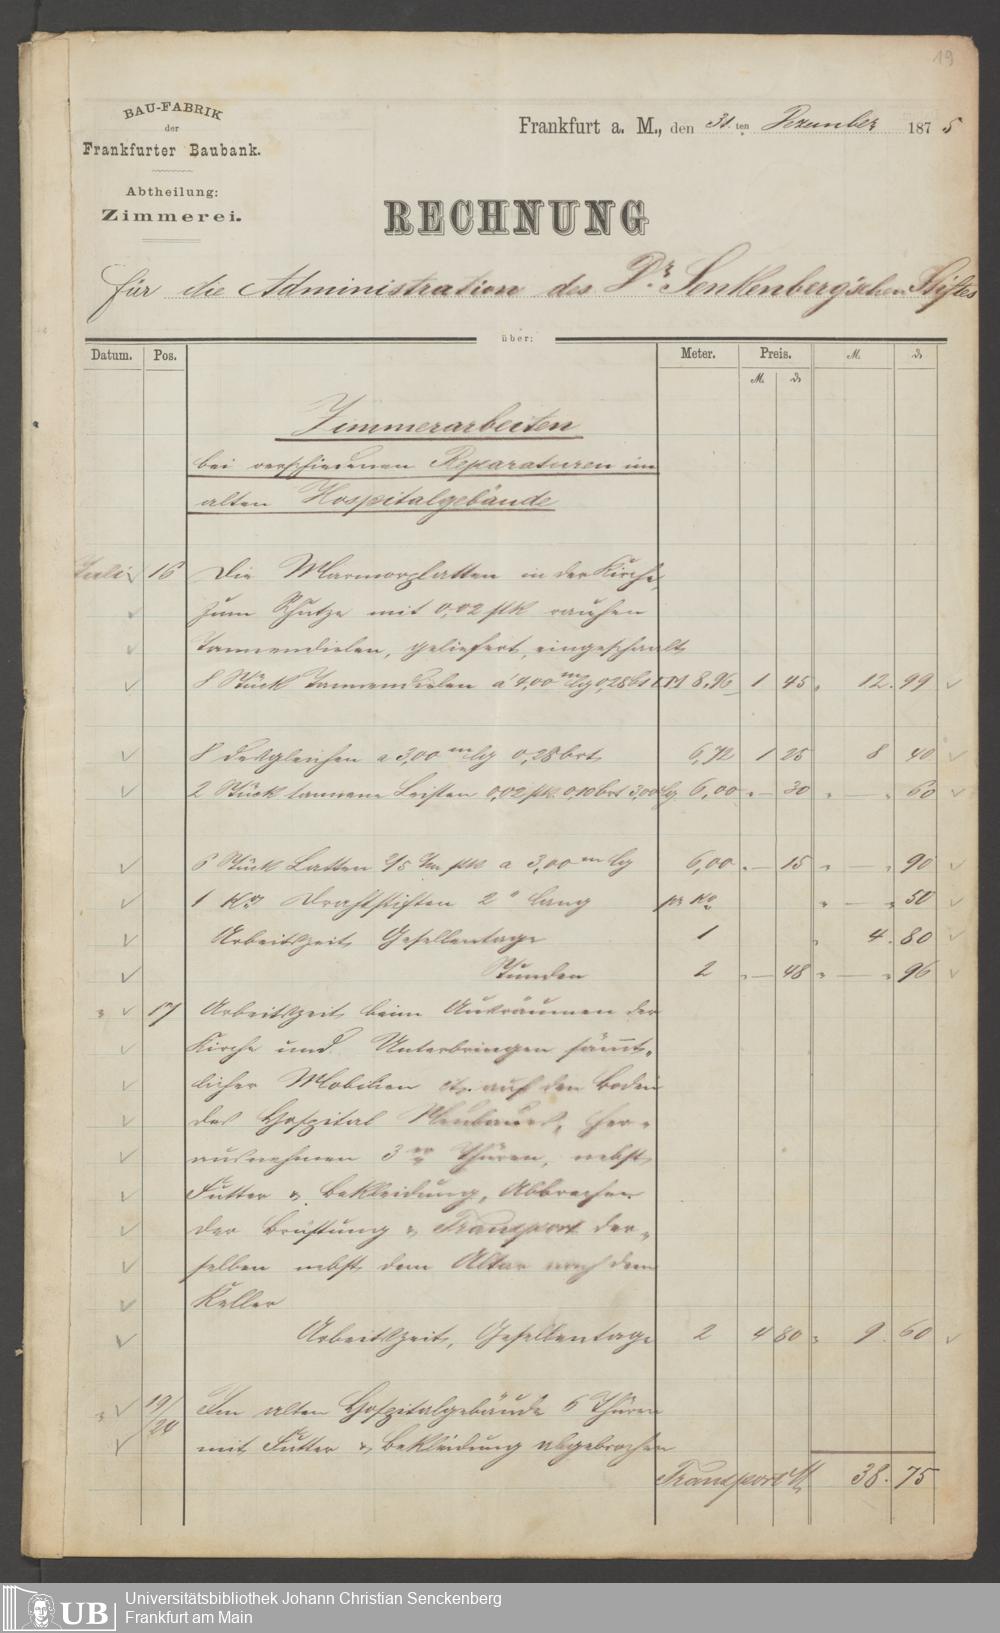 19
BAU-FABRIK
der
Frankfurter Baubank.
Abtheilung:
Zimmerei.
Frankfurt a. M., den 31. ten Dezember 1875
RECHNUNG
für die Administration des Dr. Senkenberg'schen Stiftes
über:
Datum. Pos. Meter. Preis. M. ₰
M. ₰
Zimmerarbeiten
bei verschiedenen Reparaturen im
alten Hospitalgebäude
Juli 16 Die Marmorplatten in der Kirche,
zum Schutze mit 0,02 stk rauhen
Tannendielen, geliefert, eingeschaalt
8 Stück Tannendielen a 4,00 m lg 0,28 brt 8,96 1 45 12.99
8 desgleichen a 3,00 m lg 0,28 brt 6,72 1 25 8 40
2 Stück tannene Leisten 0,02 stk 0,10 brt 3,00 lg 6,00 " — 30 " — " 60
6 Stück Latten 2/5 Zm stk a 3,00 m lg 6,00 " — 15 " — " 90
1 Ko Drahtstiften 2" lang pr Ko " — " 50
Arbeitszeit Gesellentage 1 " 4.80
Stunden 2 " — 48 " — " 96
" 17 Arbeitszeit beim Ausräumen der
Kirche und Unterbringen sämmt-
licher Mobilien etc. auf den Boden
des Hospital Neubaues, Her-
ausnehmen 3 er Thüren, nebst
Futter & Bekleidung, Abbrechen
der Brüstung & Transport der-
selben nebst dem Altar nach dem
Keller
Arbeitszeit, Gesellentage 2 4 80 " 9.60
" 19/24 Im alten Hospitalgebäude 6 Thüren
mit Futter & Bekleidung abgebrochen
Transport M 38.75
UB
Universitätsbibliothek Johann Christian Senckenberg
Frankfurt am Main